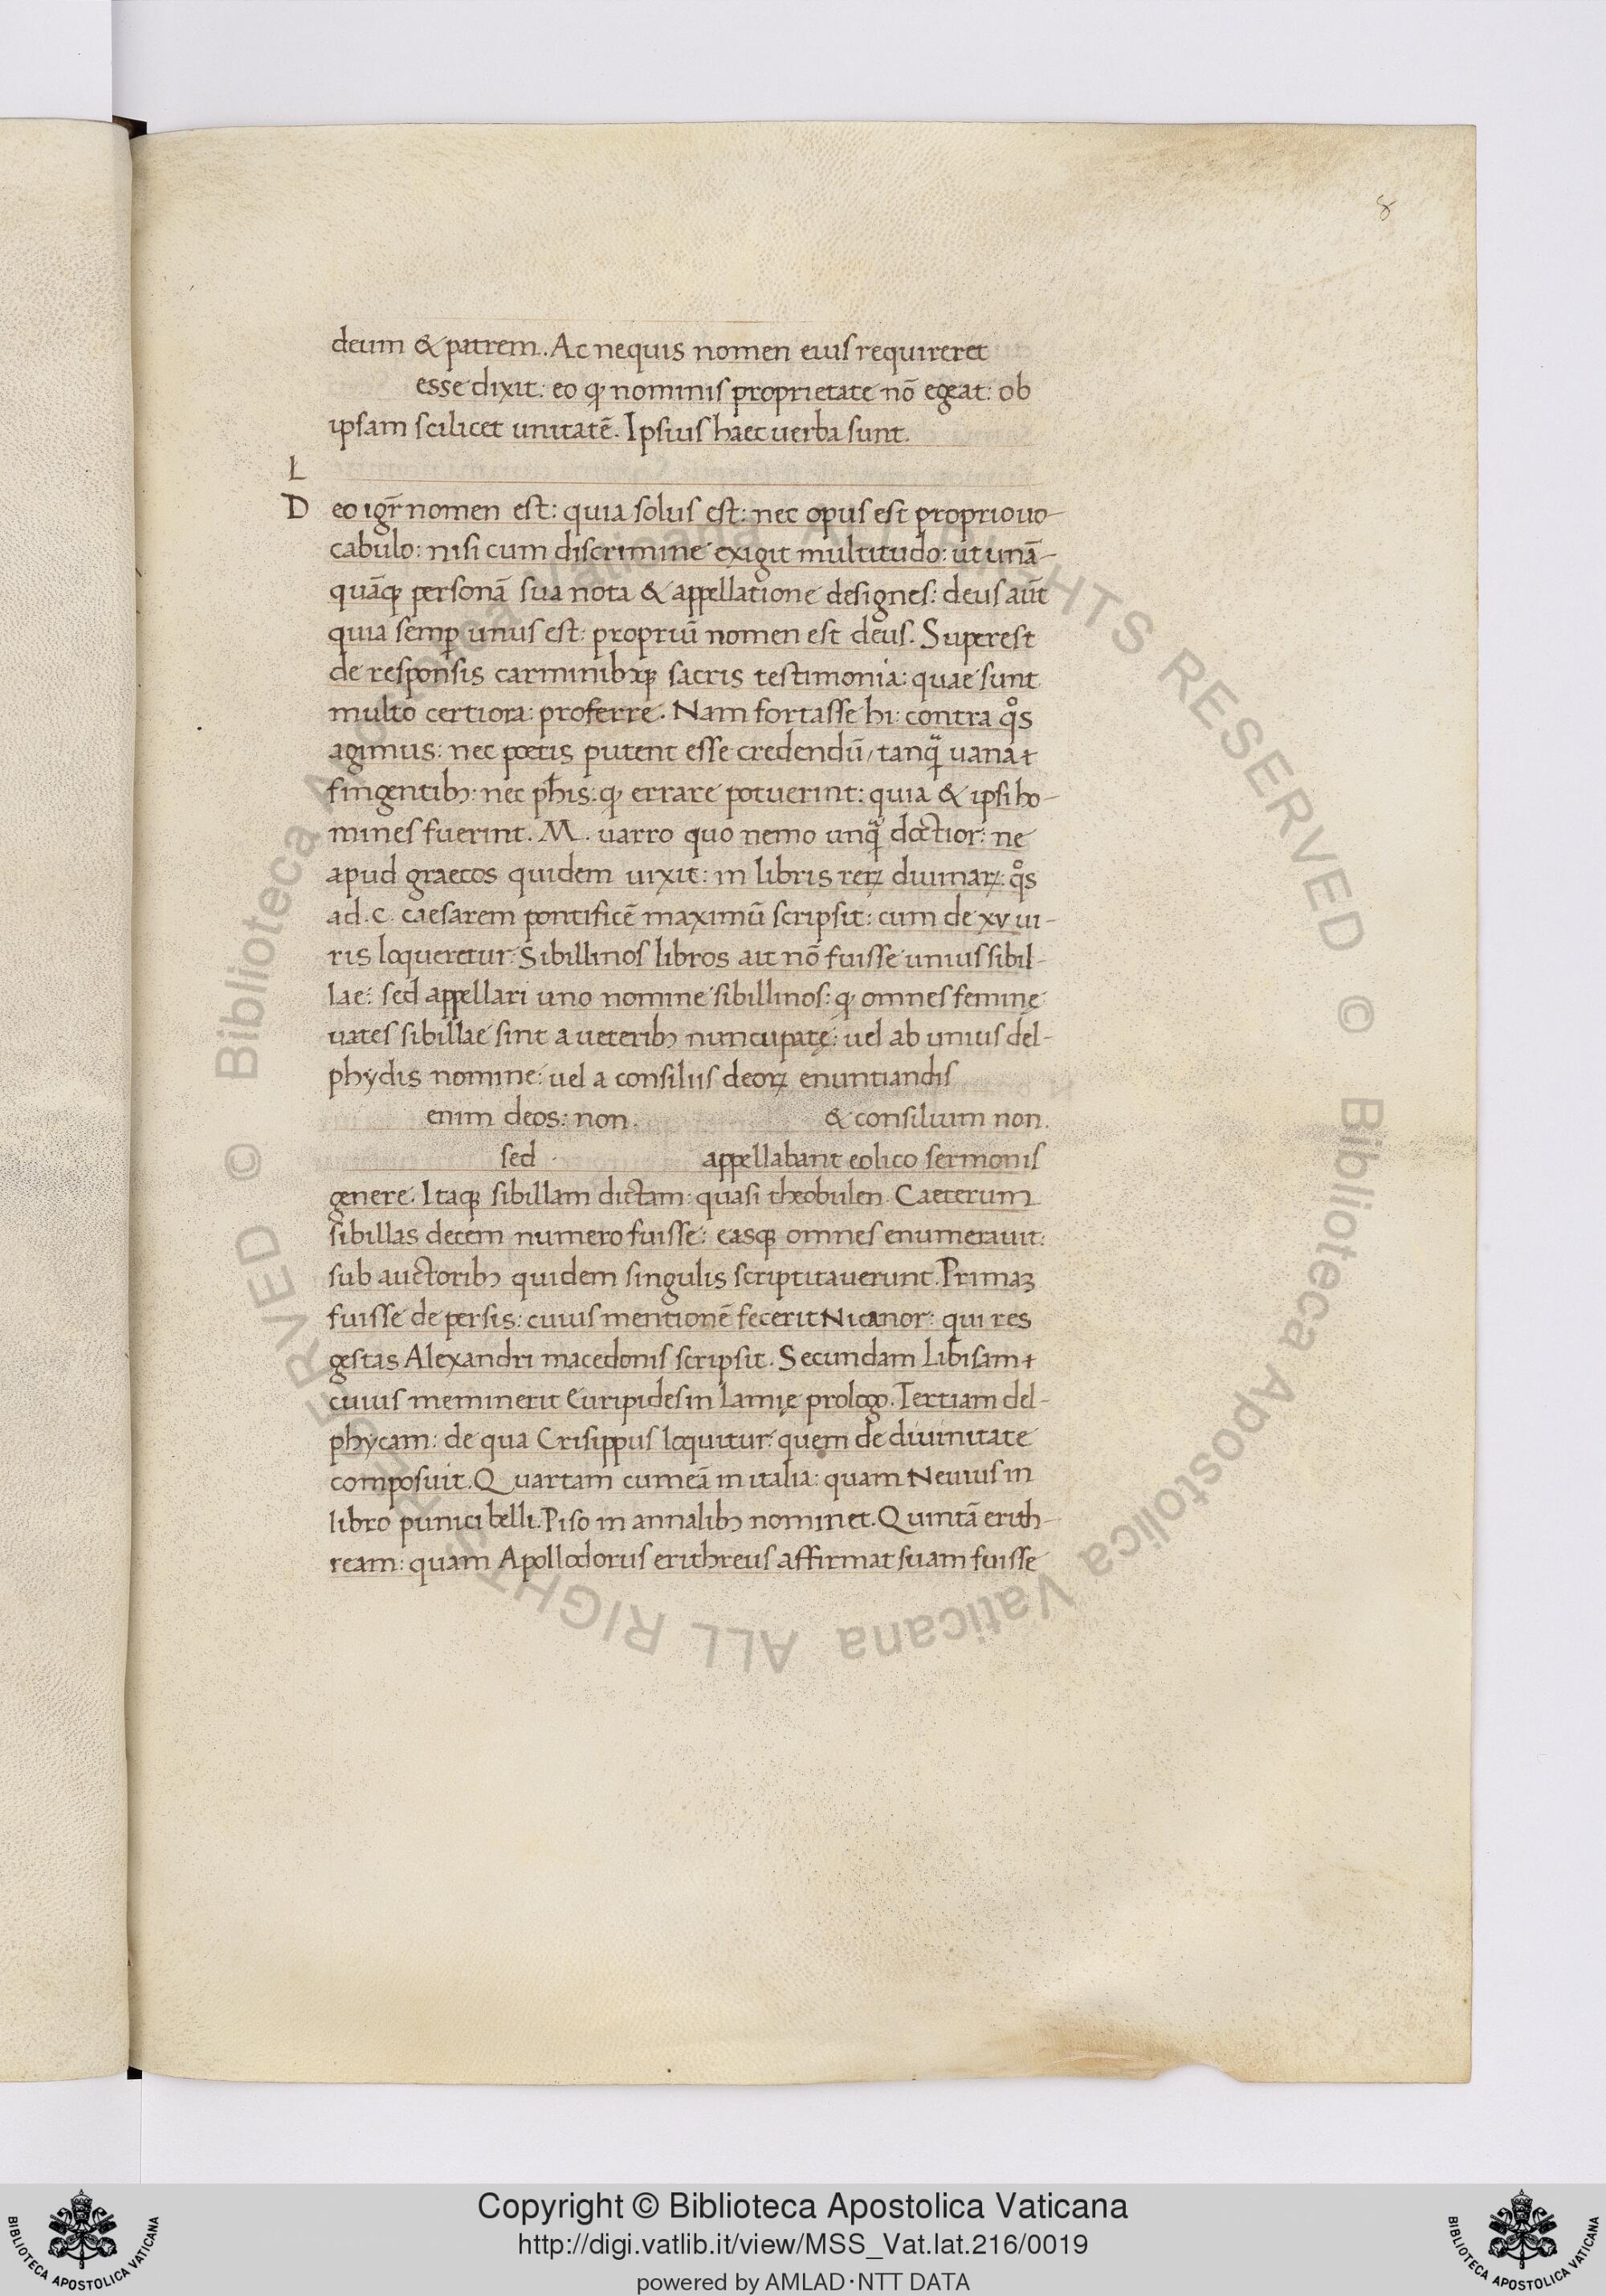 8
deum & patrem. Ac nequis nomen eius requireret
esse dixit: eo ꝙ nominis proprietate nō egeat: ob
ipsam scilicet unitatē. Ipsius haec uerba sunt.
L
Deo igr̄ nomen est: quia solus est: nec opus est proprio uo-
cabulo: nisi cum discrimine exigit multitudo: ut unā-
quāqꝫ personā sua nota & appellatione designes: deus aūt
quia semꝑ unus est: propriū nomen est deus. Superest
de responsis carminibꝫqꝫ sacris testimonia: quae sunt
multo certiora: proferre. Nam fortasse hi: contra qͦs
agimus: nec poetis putent esse credendū/ tanqᷓ uana
fingentibꝫ: nec ph̄is: ꝙ errare potuerint: quia & ipsi ho-
mines fuerint. M. uarro quo nemo unqᷓ doctior: ne
apud graecos quidem uixit: in libris rerꝝ diuinaꝝ: qͦs
ad .C. caesarem pontificē maximū scripsit: cum de xv ui-
ris loqueretur: Sibillinos libros ait nō fuisse unius sibil-
lae: sed appellari uno nomine sibillinos: ꝙ omnes feminę
uates sibillae sint a ueteribꝫ nuncupatę: uel ab unius del-
phydis nomine: uel a consiliis deoꝝ enuntiandis
enim deos: non. & consilium non.
sed appellabant eolico sermonis
genere. Itaqꝫ sibillam dictam: quasi theobulen. Caeterum
sibillas decem numero fuisse: easqꝫ omnes enumerauit:
sub auctoribꝫ quidem singulis scriptitauerunt. Primaꝫ
fuisse de persis: cuius mentionē fecerit Nicanor: qui res
gestas Alexandri macedonis scripsit. Secundam Libisam
cuius meminerit Euripides in Lamię prologo. Tertiam del-
phycam: de qua Crisippus loquitur: quem de diuinitate
composuit. Quartam cumeā in italia: quam Neuius in
libro punici belli. Piso in annalibꝫ nominet. Quintā erith-
ream: quam Apollodorus erithreus affirmat suam fuisse
© Biblioteca Apostolica Vaticana ALL RIGHTS RESERVED © Biblioteca Apostolica Vaticana ALL RIGHTS RESERVED
Copyright © Biblioteca Apostolica Vaticana
http://digi.vatlib.it/view/MSS_Vat.lat.216/0019
powered by AMLAD·NTT DATA
BIBLIOTECA APOSTOLICA VATICANA
BIBLIOTECA APOSTOLICA VATICANA